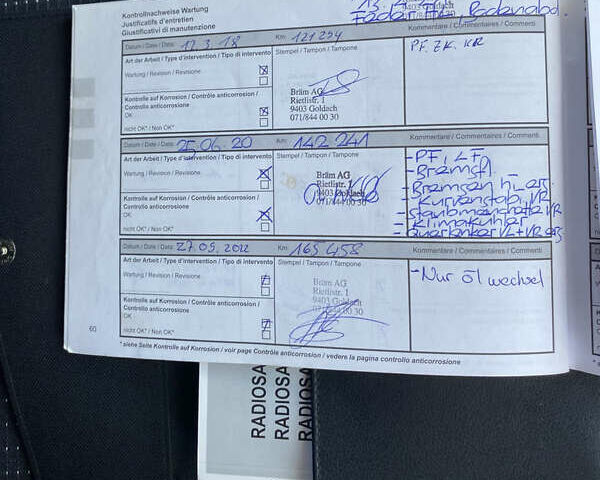 Kontrollnachweise Wartung
Justificatifs d'entretien
Giustificativi di manutenzione
Datum / Date / Data 17.3.18 Km 121254 Kommentare / Commentaires / Commenti
Art der Arbeit / Type d'intervention / Tipo di intervento Stempel / Tampon / Tampone PF. ZK. KR
Wartung / Revision / Revisione
Bräm AG
Rietlistr. 1
9403 Goldach
071/844 00 30
Kontrolle auf Korrosion / Contrôle anticorrosion /
Controllo anticorrosione
OK
nicht OK* / Non OK*
Datum / Date / Data 25.06.20 Km 142 241 Kommentare / Commentaires / Commenti
Art der Arbeit / Type d'intervention / Tipo di intervento Stempel / Tampon / Tampone - PF, LF
Wartung / Revision / Revisione
Bräm AG
Rietlistr. 1
9403 Goldach
071/844 00 30
- Bremsfl.
- Bremsen hi
Kontrolle auf Korrosion / Contrôle anticorrosion /
Controllo anticorrosione
OK
nicht OK* / Non OK*
- Klimakühler
- Querlenker
Datum / Date / Data 27.09. Km 165 458 Kommentare / Commentaires / Commenti
Art der Arbeit / Type d'intervention / Tipo di intervento Stempel / Tampon / Tampone - Nur öl wechsel
Wartung / Revision / Revisione
Bräm AG
Rietlistr. 1
9403 Goldach
071/844 00 30
Kontrolle auf Korrosion / Contrôle anticorrosion /
Controllo anticorrosione
OK
nicht OK* / Non OK*
60
* siehe Seite Kontrolle auf Korrosion / voir page Contrôle anticorrosion / vedere la pagina controllo anticorrosione
RADIOSA
RADIOSA
RADIOSA